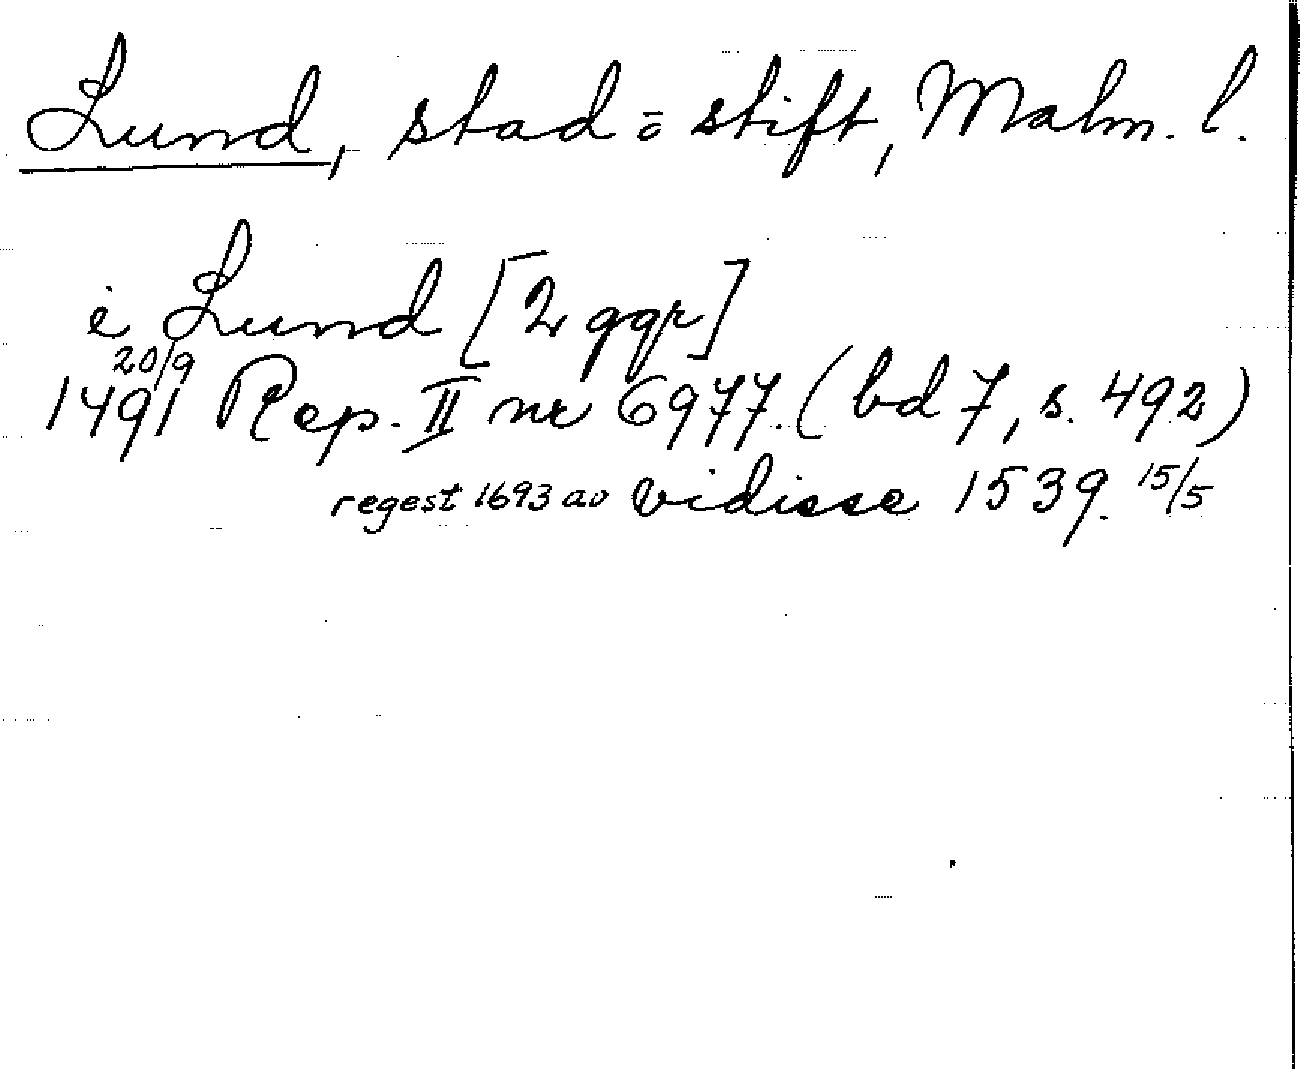 Lund, stad o stift, Malm. l.
i Lund [2 ggr]
20/9
1491 Rep. II nr 6977. (bd 7, s. 492)
regest 1693 av vidisse 1539 15/5